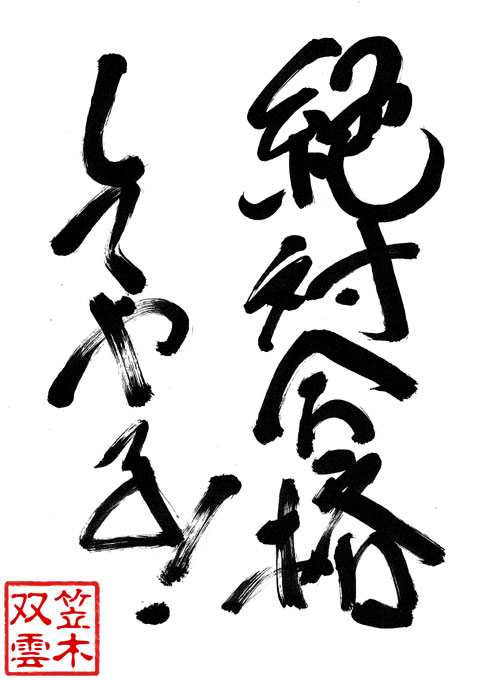 絶対合格
してやる!
笠木
双雲